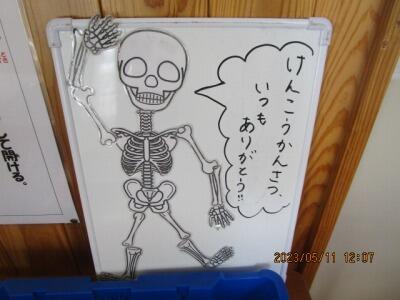 けんこうかんさつ、
いつも
ありがとう!!
て開ける。
2023/05/11 12:07